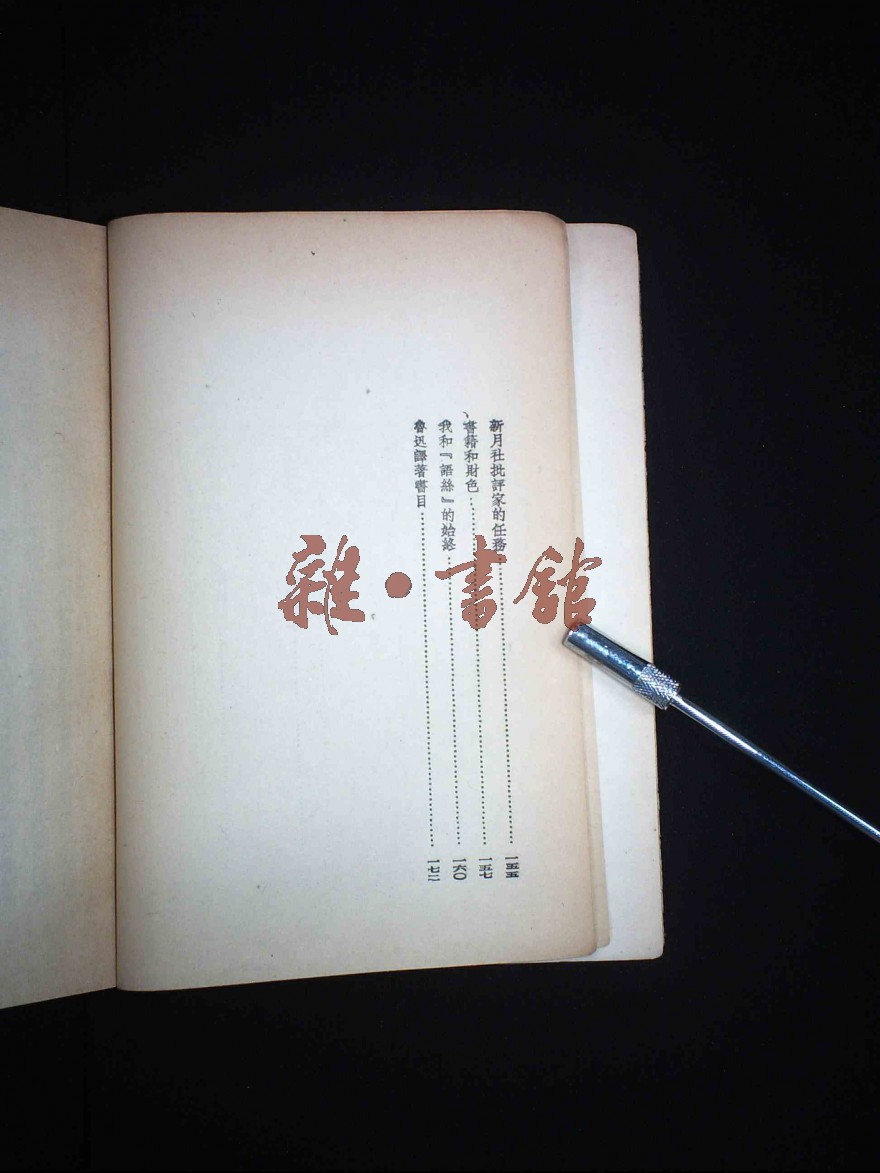 新月社批評家的任務……一五五
書籍和財色……一五七
我和『語絲』的始終……一六〇
魯迅譯著書目……一七二
雜·書館